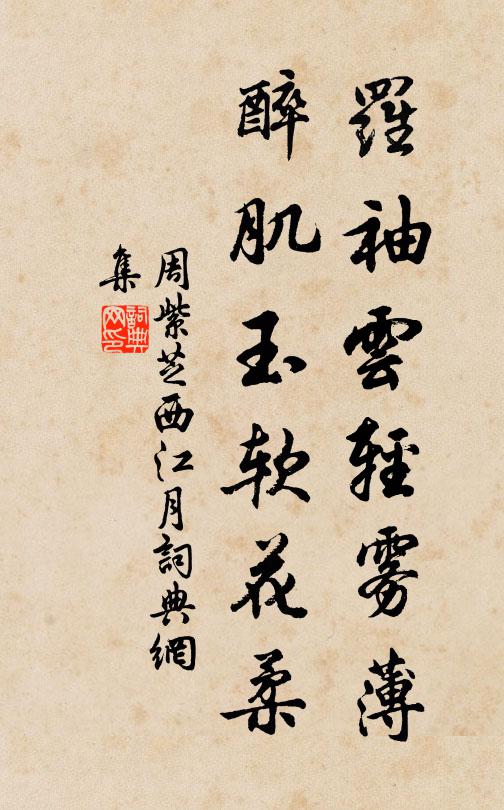 羅袖雲輕雾薄
醉肌玉软花柔
周紫芝西江月詞典網
集
詞典
网印